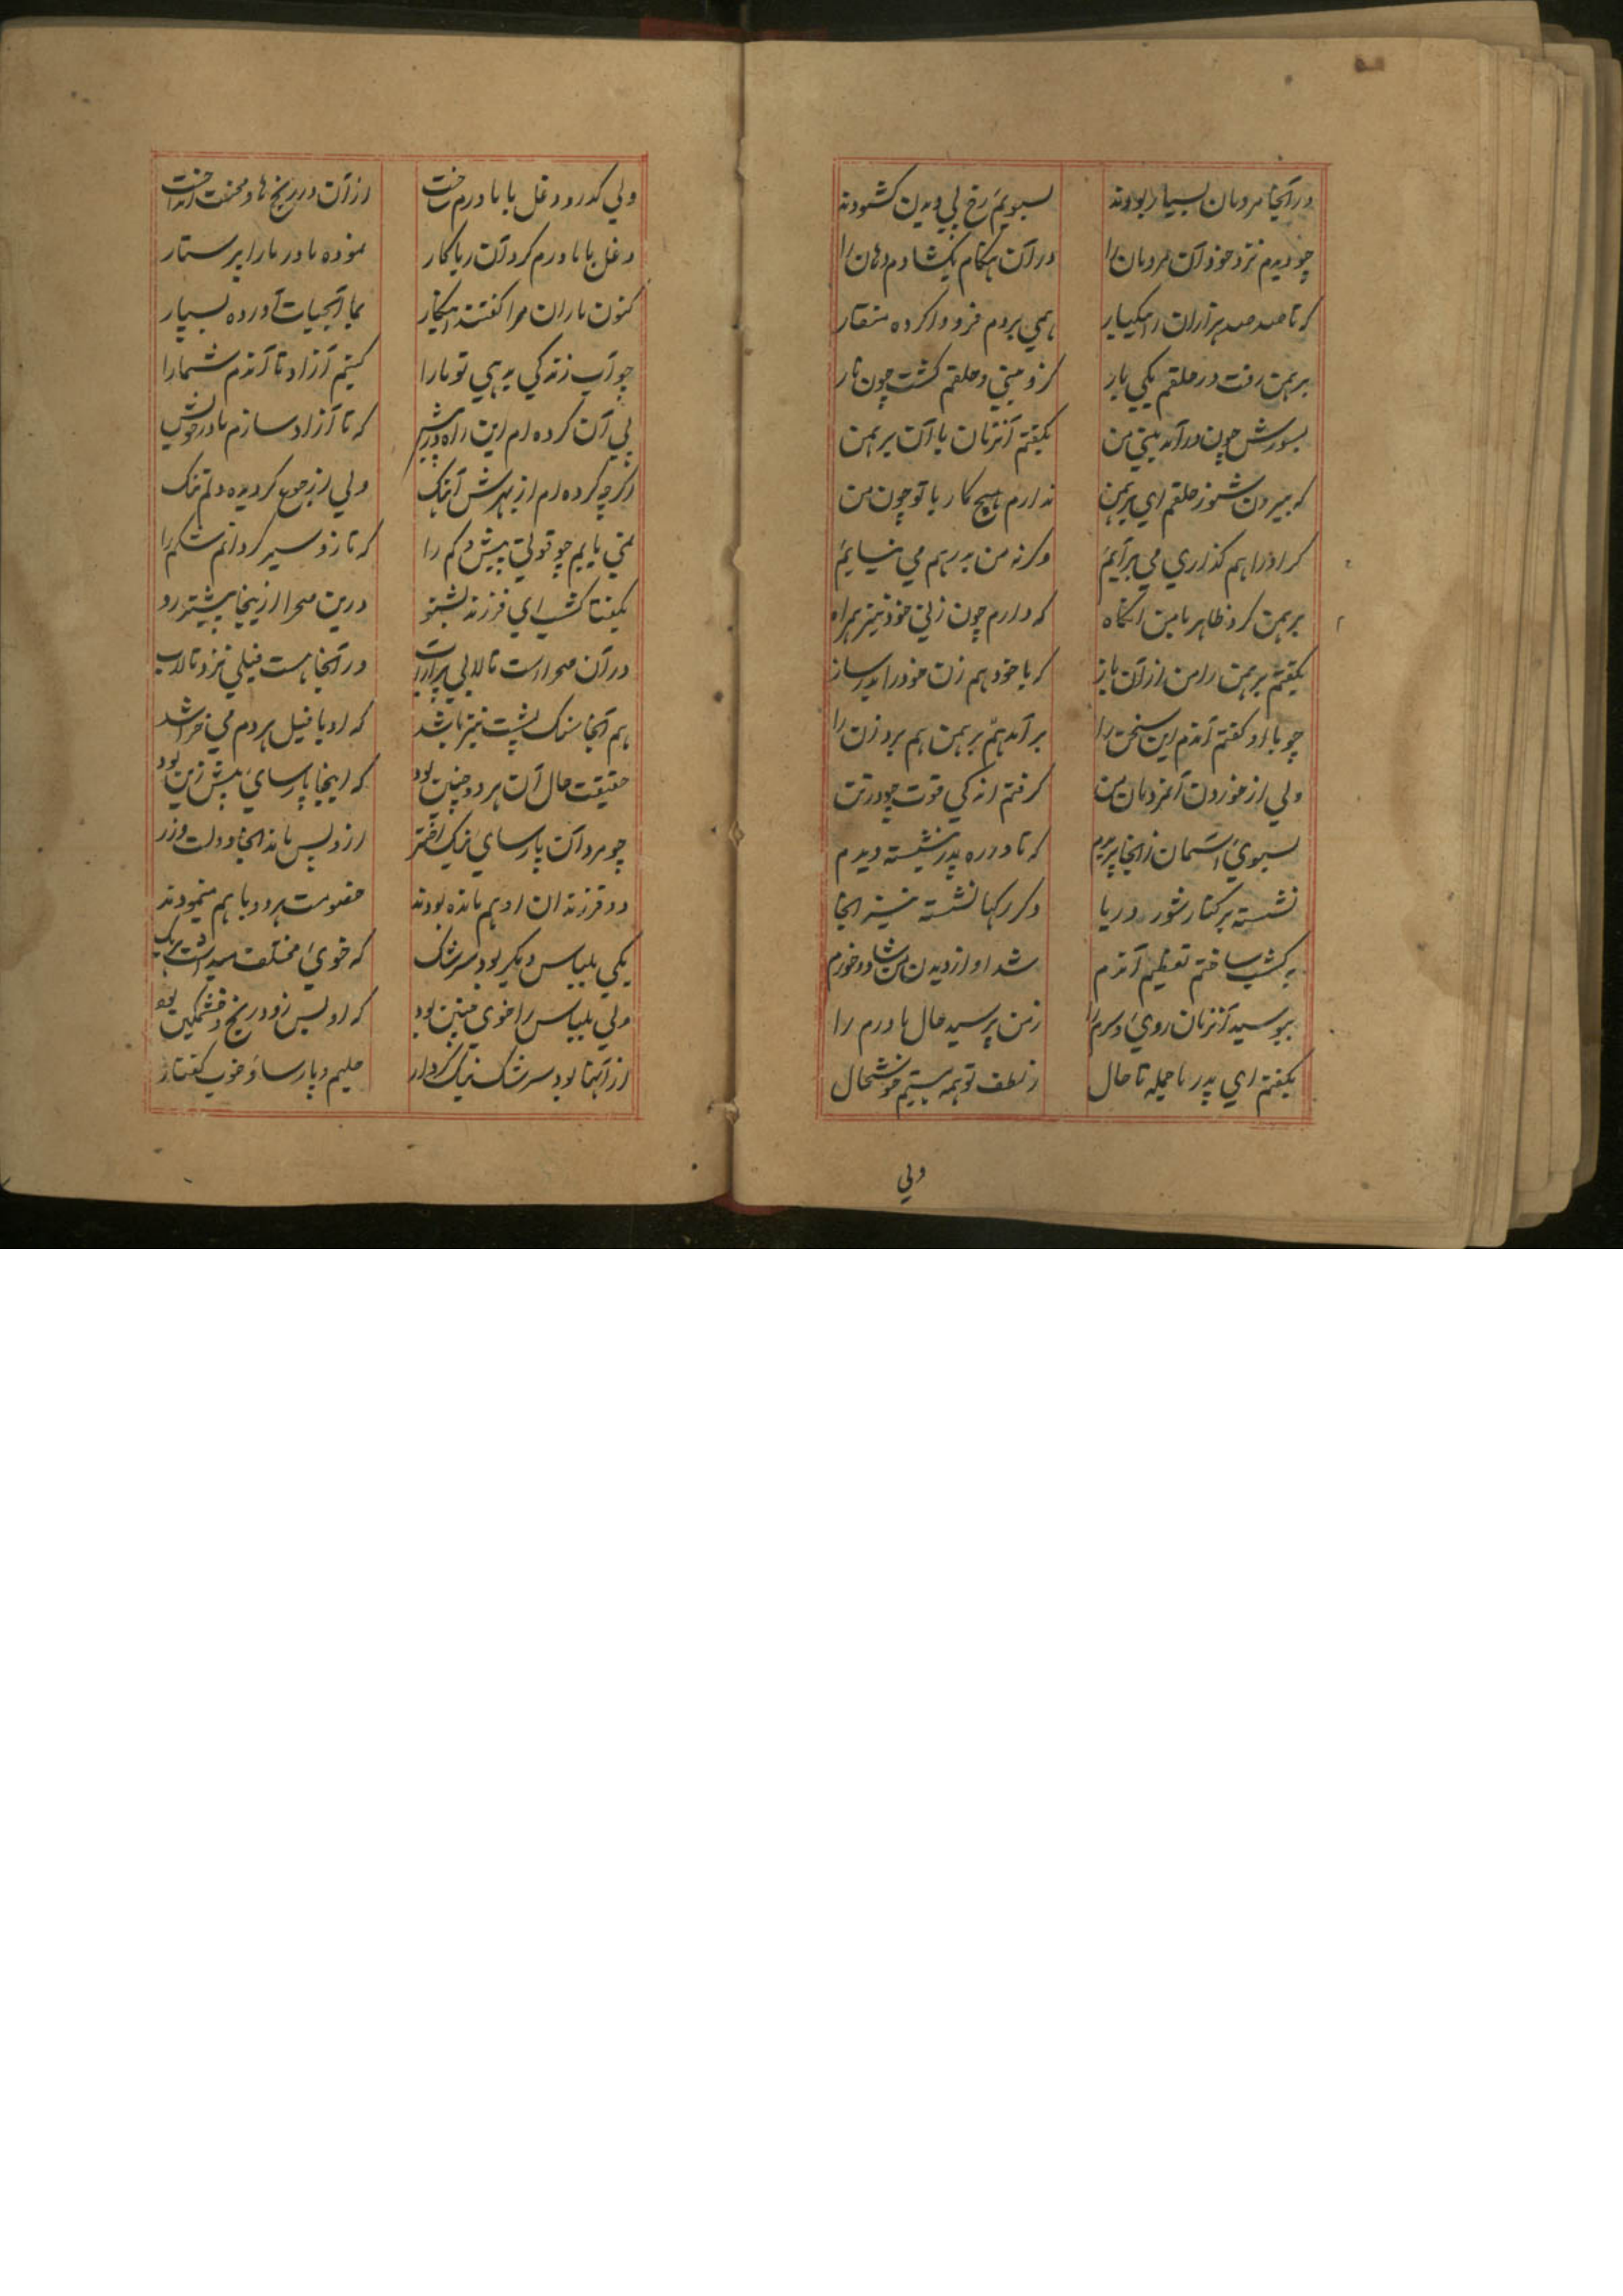 در آنجا مردمان بسیار بودند بسویم رخ پی دیدن کشودند
چو دیدم نزد خود آن مردمان را در آن هنکام بکشادم دهان را
که تا صد صد هزاران را بیکبار همی بردم فرو وا کرده منقار
برهمن رفت در حلقم یکی بار کزو بینی و حلقم کشت چون نار
بسوزش چون در آمد بینی من بکفتم آنزمان با آن برهمن
که بیرون شو ز حلقم ای برهمن ندارم هیچ کار با تو چون من
کر او را هم کذاری می برآیم وکرنه من بدر هم می نیایم
برهمن کرد ظاهر با من آنکاه که دارم چون زنی خود نیز همراه
بکفتم برهمن را من از آن باز که با خود هم زن خود را بدر ساز
چو با او کفتم آندم این سخن را بر آمد هم برهمن هم برد زن را
ولی از خوردن آنمردمان من کرفتم اندکی قوت چو در تن
بسوی آسمان زانجا پریدم که تا در ره پدر بنشسته دیدم
نشسته بر کنار شور دریا دکر رکها نشسته نیز آنجا
به کشب ساختم تعظیم آندم شد او از دیدن من شاد و خورم
ببوسید آنزمان روی و سرم را ز من پرسید حال مادرم را
بکفتم ای پدر ما جمله تا حال ز لطف تو همه هستیم خوشحال
ولی
ولی کدرو دغل با مادرم ساخت از آن در رنج ها و محنت انداخت
دغل با مادرم کرد آن ریاکار نموده مادر ما را پرستار
کنون ماران مرا کفتند اینکار بما آبحیات آورده بسپار
چو آب زندکی بدهی تو ما را کنیم آزاد تا آندم شما را
پی آن کرده ام این راه در پیش که تا آزاد سازم مادر خویش
اکرچه کرده ام از بهرش آهنک ولی از جوع کردیده دلم تنک
نمی یابم چو قوتی پیش و کم را که تا زو سیر کردانم شکم را
بکفتا کشب ای فرزند بشنو درین صحرا ازینجا پیشتر رو
در آن صحرا است تالابی پر از آب در آنجا هست فیلی نزد تالاب
هم آنجا سنک پشت نیز باشد که او با فیل هر دم می خراشد
حقیقت حال آن هر دو چنین بود که اینجا پارسای پیش زین بود
چو مرد آن پارسای نیک اختر ازو پس ماند آنجا دولت و زر
دو فرزند ان او هم مانده بودند خصومت هر دو با هم مینمودند
یکی بلباس دیکر بود سرشک که خوی مختلف میداشت هر یک
ولی بلباس را خوی چنین بود که او بس زود رنج و خشمکین بود
از آنها بود سرشک نیک کردار حلیم و پارسا و خوب کفتار